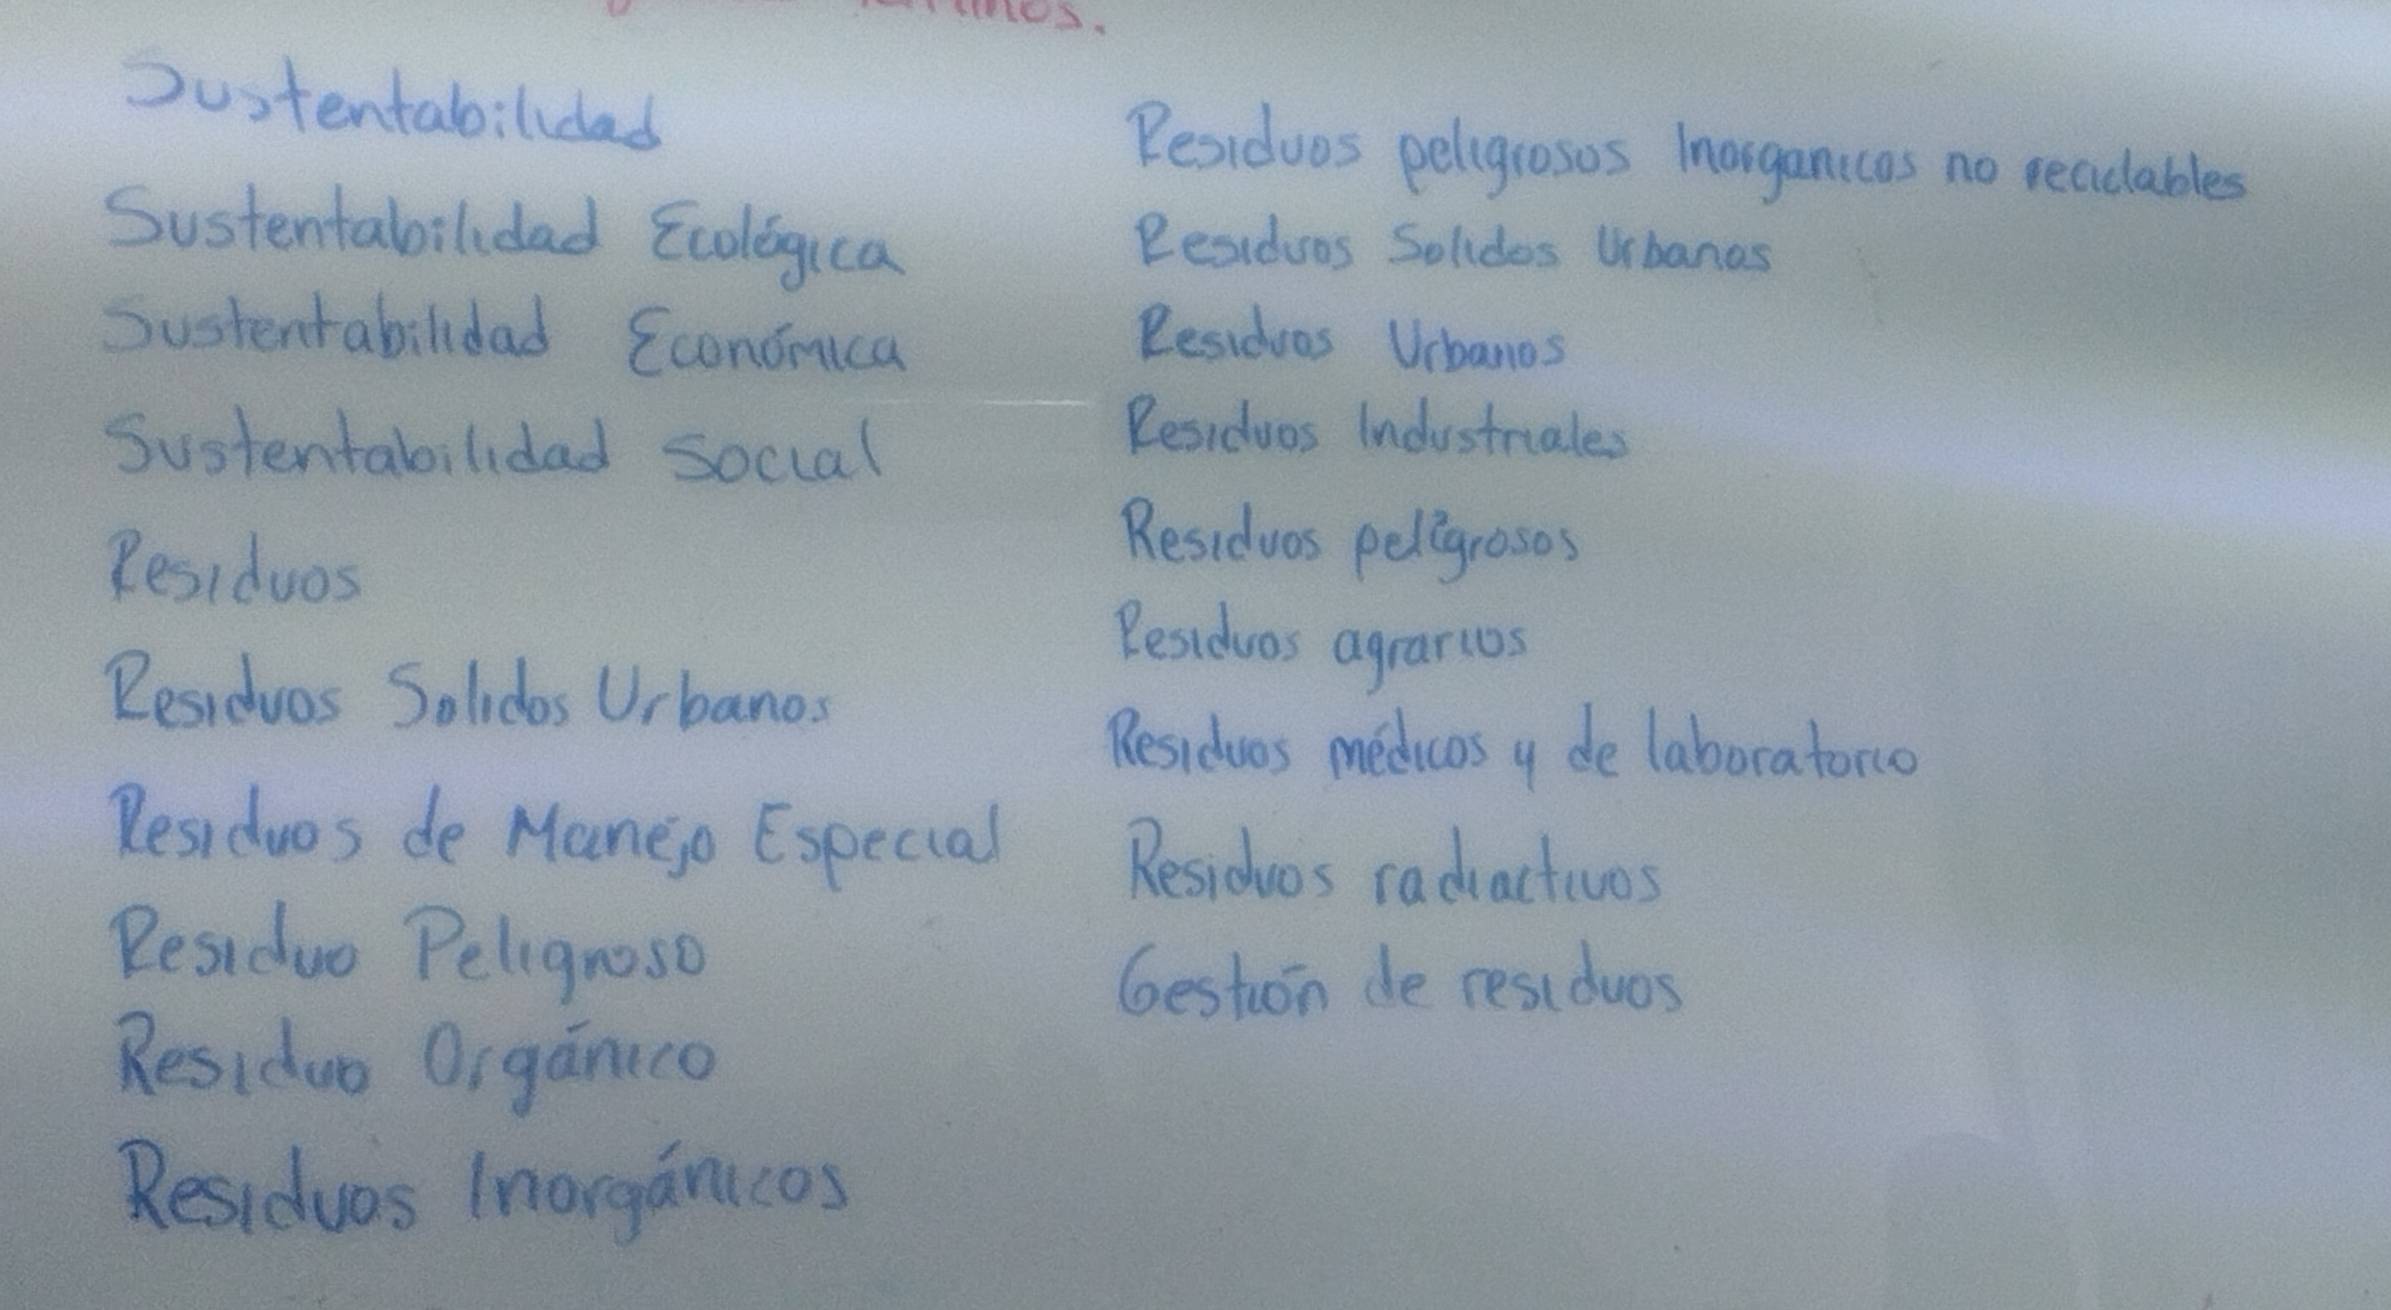 Sustentabilidad
Sustentabilidad Ecológica
Sustentabilidad Económica
Sustentabilidad Social
Residuos
Residuos Solidos Urbanos
Residuos de Manejo Especial
Residuo Peligroso
Residuo Orgánico
Residuos Inorgánicos
Residuos peligrosos Inorganicos no reciclables
Residuos Solidos Urbanos
Residuos Urbanos
Residuos Industriales
Residuos peligrosos
Residuos agrarios
Residuos médicos y de laboratorio
Residuos radiactivos
Gestión de residuos